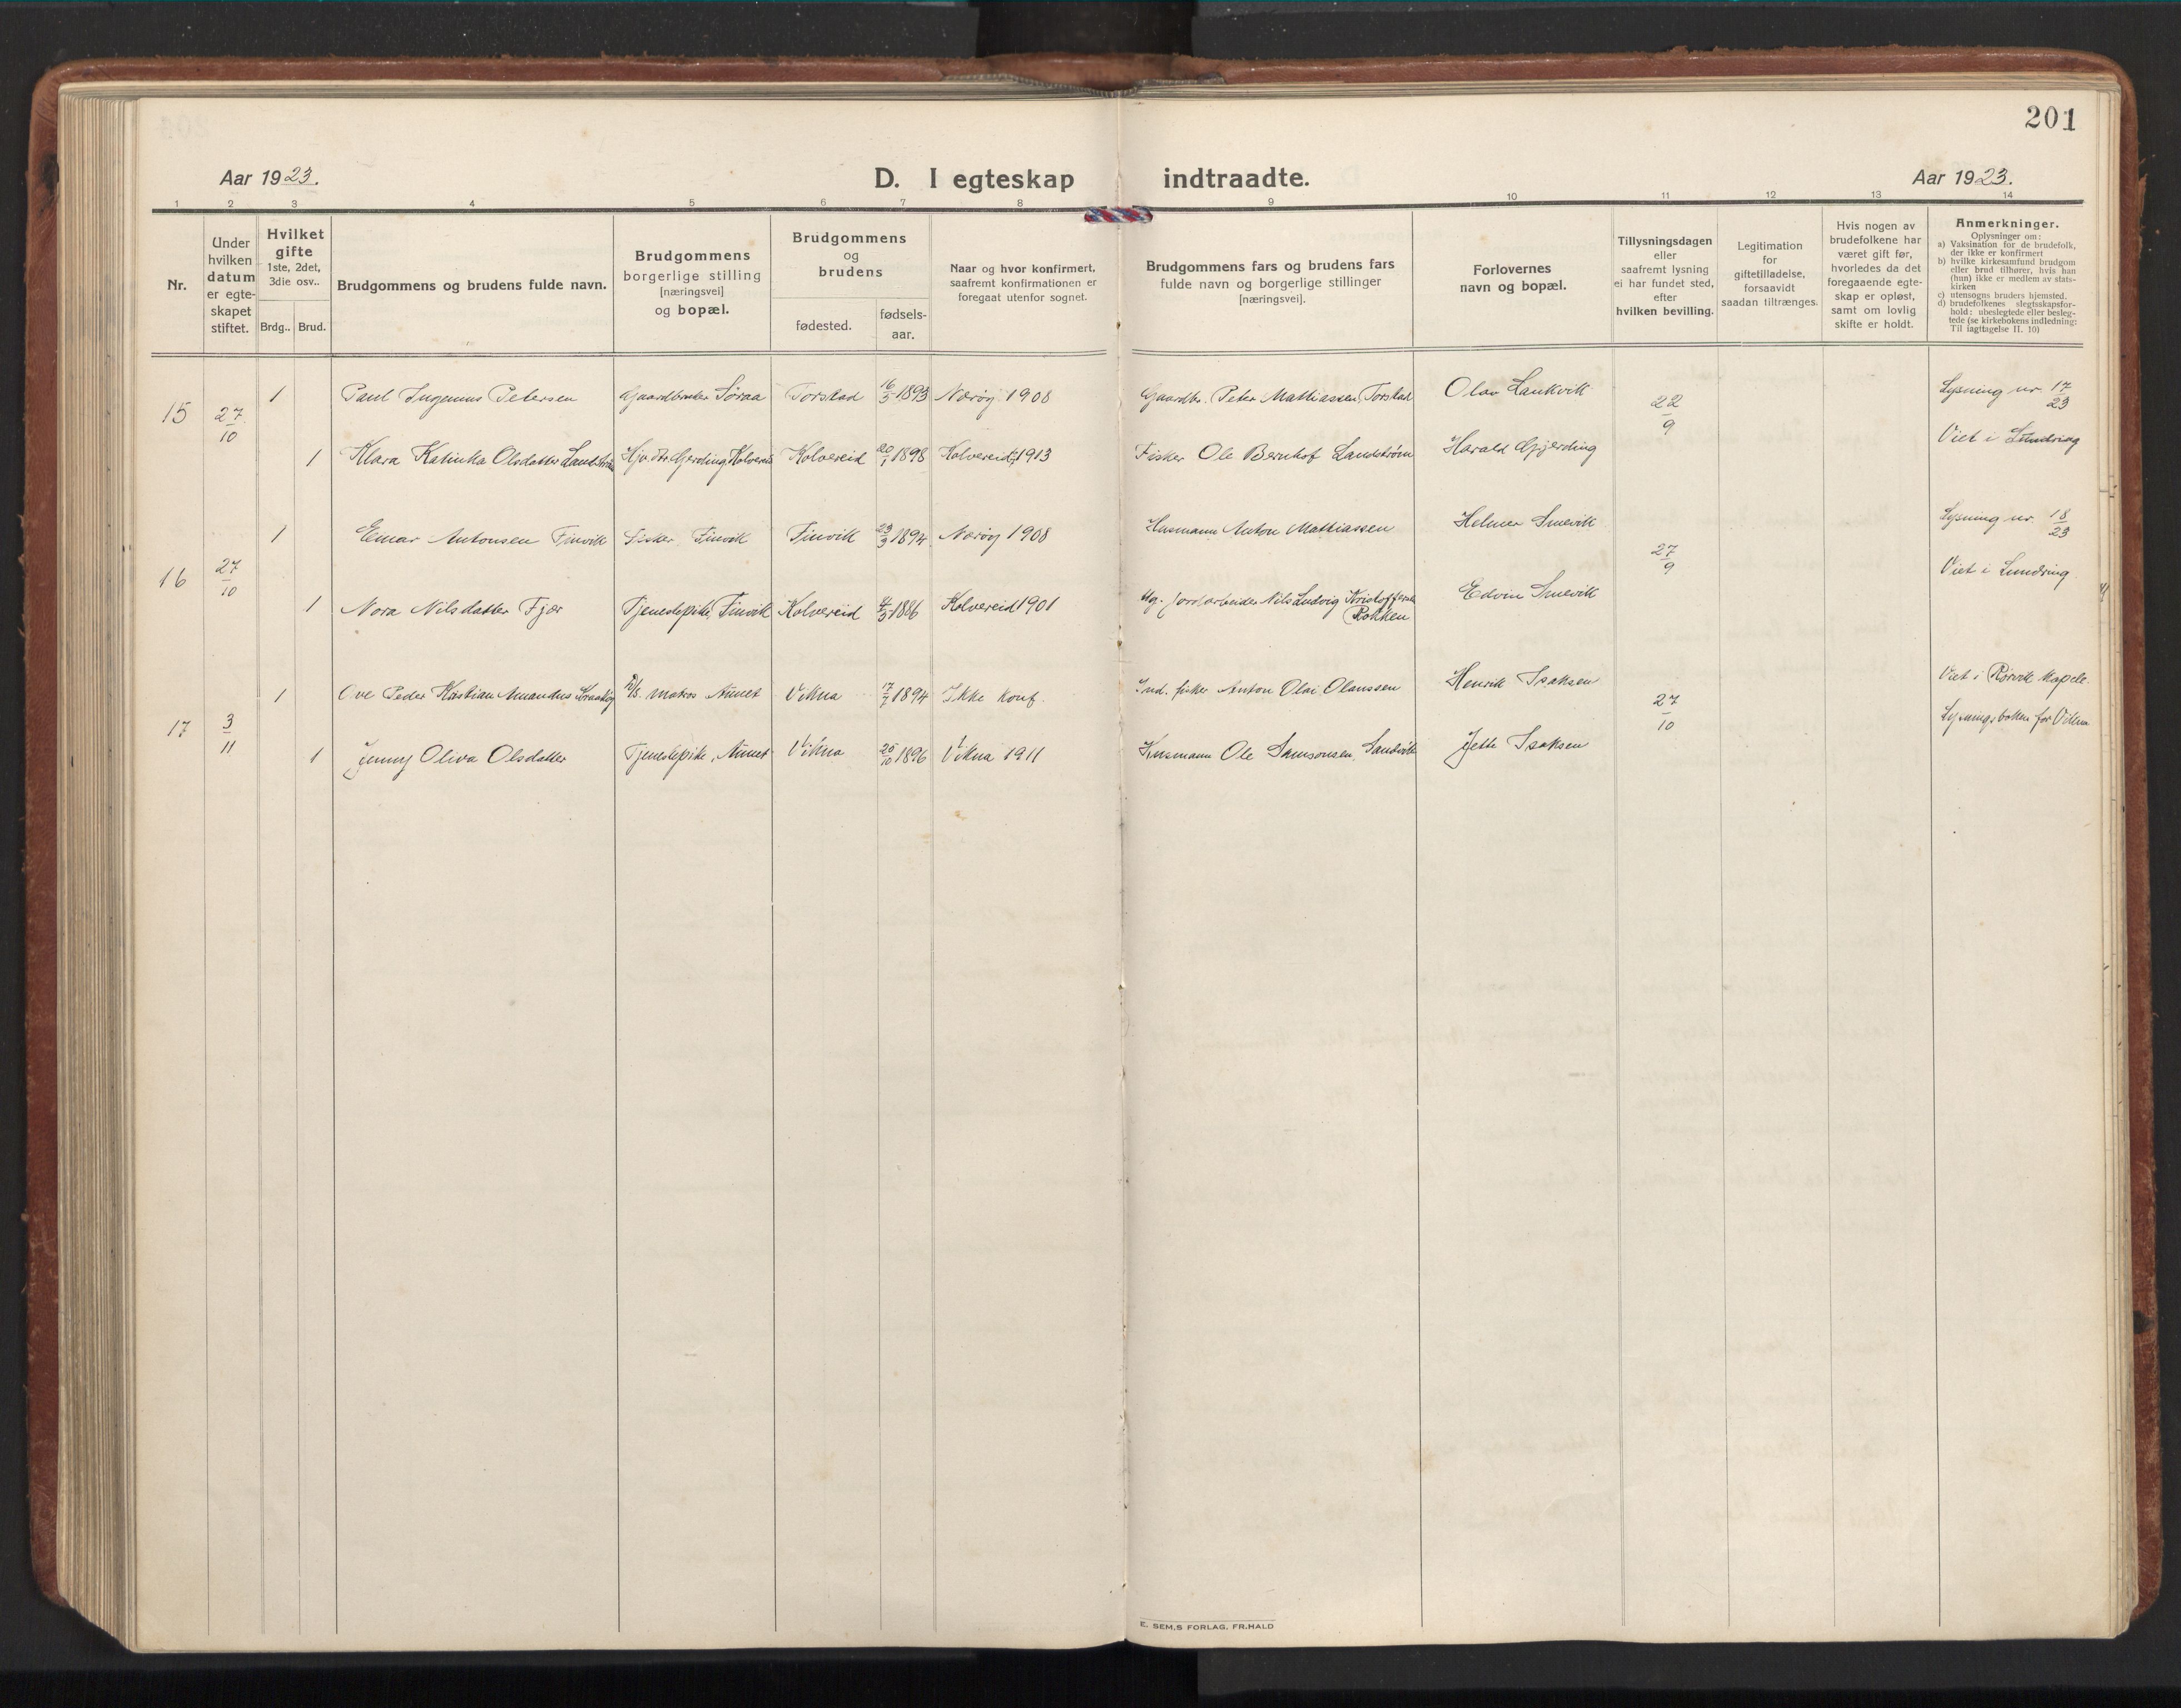 201
Aar 1923.
D. I egteskap indtraadte.
Aar 1923.
1 2 3 4 5 6 7 8 9 10 11 12 13 14
Nr.
Under
hvilken
datum
er egte-
skapet
stiftet.
Hvilket
gifte
1ste, 2det,
3die osv..
Brdg.. Brud.
Brudgommens og brudens fulde navn.
Brudgommens
borgerlige stilling
[næringsvei]
og bopæl.
Brudgommens
og
brudens
fødested.
fødsels-
aar.
Naar og hvor konfirmert,
saafremt konfirmationen er
foregaat utenfor sognet.
Brudgommens fars og brudens fars
fulde navn og borgerlige stillinger
[næringsvei].
Forlovernes
navn og bopæl.
Tillysningsdagen
eller
saafremt lysning
ei har fundet sted,
efter
hvilken bevilling.
Legitimation
for
giftetilladelse,
forsaavidt
saadan tiltrænges.
Hvis nogen av
brudefolkene har
været gift før,
hvorledes da det
foregaaende egte-
skap er opløst,
samt om lovlig
skifte er holdt.
Anmerkninger.
Oplysninger om:
a) Vaksination for de brudefolk,
der ikke er konfirmert
b) hvilke kirkesamfund brudgom
eller brud tilhører, hvis han
(hun) ikke er medlem av stats-
kirken
c) utensogns bruders hjemsted.
d) brudefolkenes slegtsskapsfor-
hold: ubeslegtede eller besleg-
tede (se kirkebokens indledning:
Til iagttagelse II. 10)
15 27/10 22/9
1 Paul Ingemus Petersen Gaardbruker Søraa Torstad 16/5 1893 Nærøy 1908 Gaardbr. Peter Mathiassen Torstad Olav Laukvik Lysning nr. 17/23
1 Klara Katinka Olsdatter Landstrøm Gjerding Kolvereid Kolvereid 20/1 1898 Kolvereid 1913 Fisker Ole Bernhof Landstrøm Harald Gjerding Viet i Lundring
16 27/10 27/9
1 Einar Antonsen Finvik Fisker Finvik Finvik 23/3 1894 Nærøy 1908 Husmann Anton Mathiassen Helmer Smevik Lysning nr. 18/23
1 Nora Nilsdatter Fjær Tjenestepike, Finvik Kolvereid 1886 Kolvereid 1901 Ug. jordarbeider Nils Ludvig Kristoffersen Edvin Smevik Viet i Lundring
17 3/11 27/10
1 Ove Peder Kristian Amandus matros Aunet Vikna 17/7 1894 Ikke konf. Ind. fisker Anton Olai Olaussen Henrik Isaksen Viet i Rørvik kapele
1 Jenny Oliva Olsdatter Tjenestepike, Aunet Vikna 25/10 1896 Vikna 1911 Husmann Ole Samsonsen, Sandvik Jette Isaksen Lysningsboken for Vikna
E. SEM.S FORLAG, FR.HALD